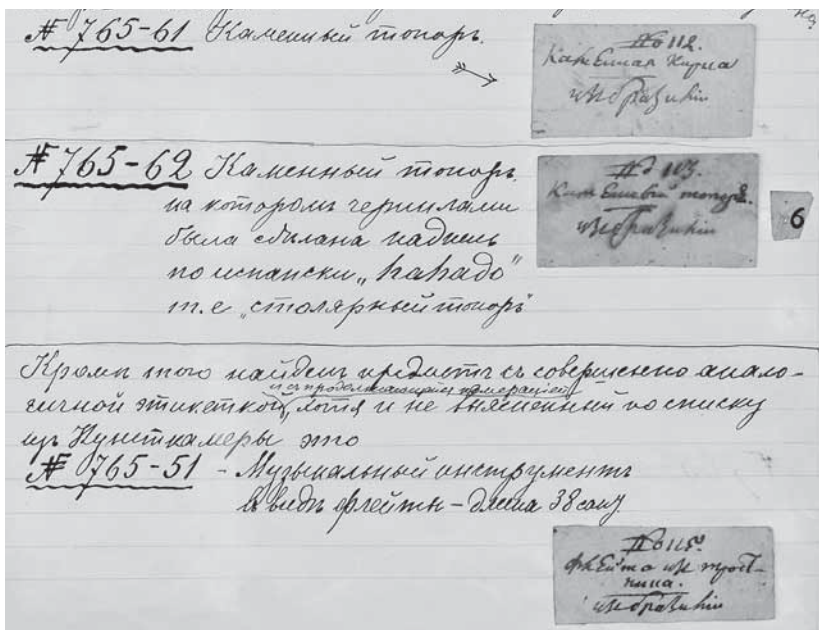 на
№ 765-61 Каменный топоръ.
№ 112.
Каменная Кирка
изъ Бразиліи
№ 765-62 Каменный топоръ,
на которомъ чернилами
была сдѣлана надпись
по испански „hahado"
т.е „столярный топоръ"
№ 113.
Каменный топоръ.
изъ Бразиліи
6
Кромѣ того найденъ предметъ съ совершенно анало-
и съ продолжающейся нумераціей
гичной этикеткой, хотя и не выясненный по списку
изъ Кунсткамеры это
№ 765-51 - Музыкальный инструментъ
въ видѣ флейты - длина 38 сант.
№ 115.
флейта изъ трост-
ника.
изъ Бразиліи